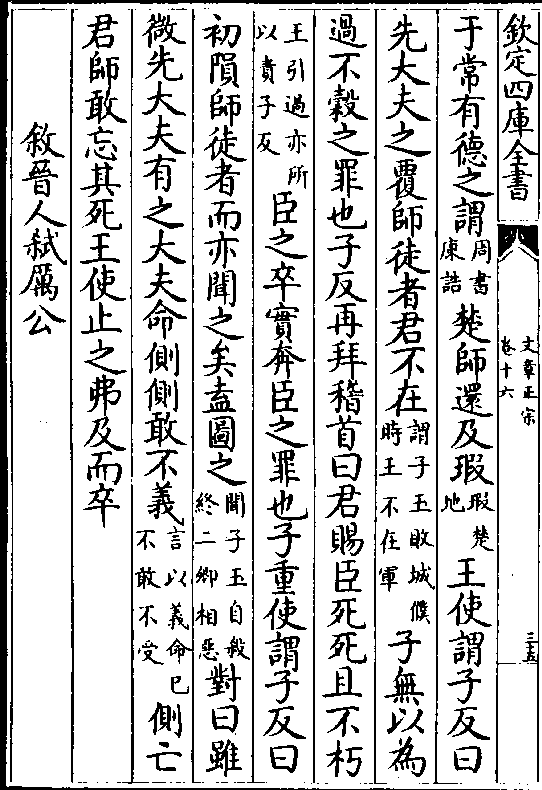 欽定四庫全書
文章正宗
卷十六
三五
于常有德之謂周書康誥楚師還及瑕瑕楚地王使謂子反曰
先大夫之覆師徒者君不在謂子玉敗城濮時王不在軍子無以為
過不榖之罪也子反再拜稽首曰君賜臣死死且不朽
王引過亦所以責子反臣之卒實奔臣之罪也子重使謂子反曰
初隕師徒者而亦聞之矣盍圖之聞子玉自殺終二卿相惡對曰雖
微先大夫有之大夫命側側敢不義言以義命已不敢不受側亡
君師敢忘其死王使止之弗及而卒
敘晉人弒厲公